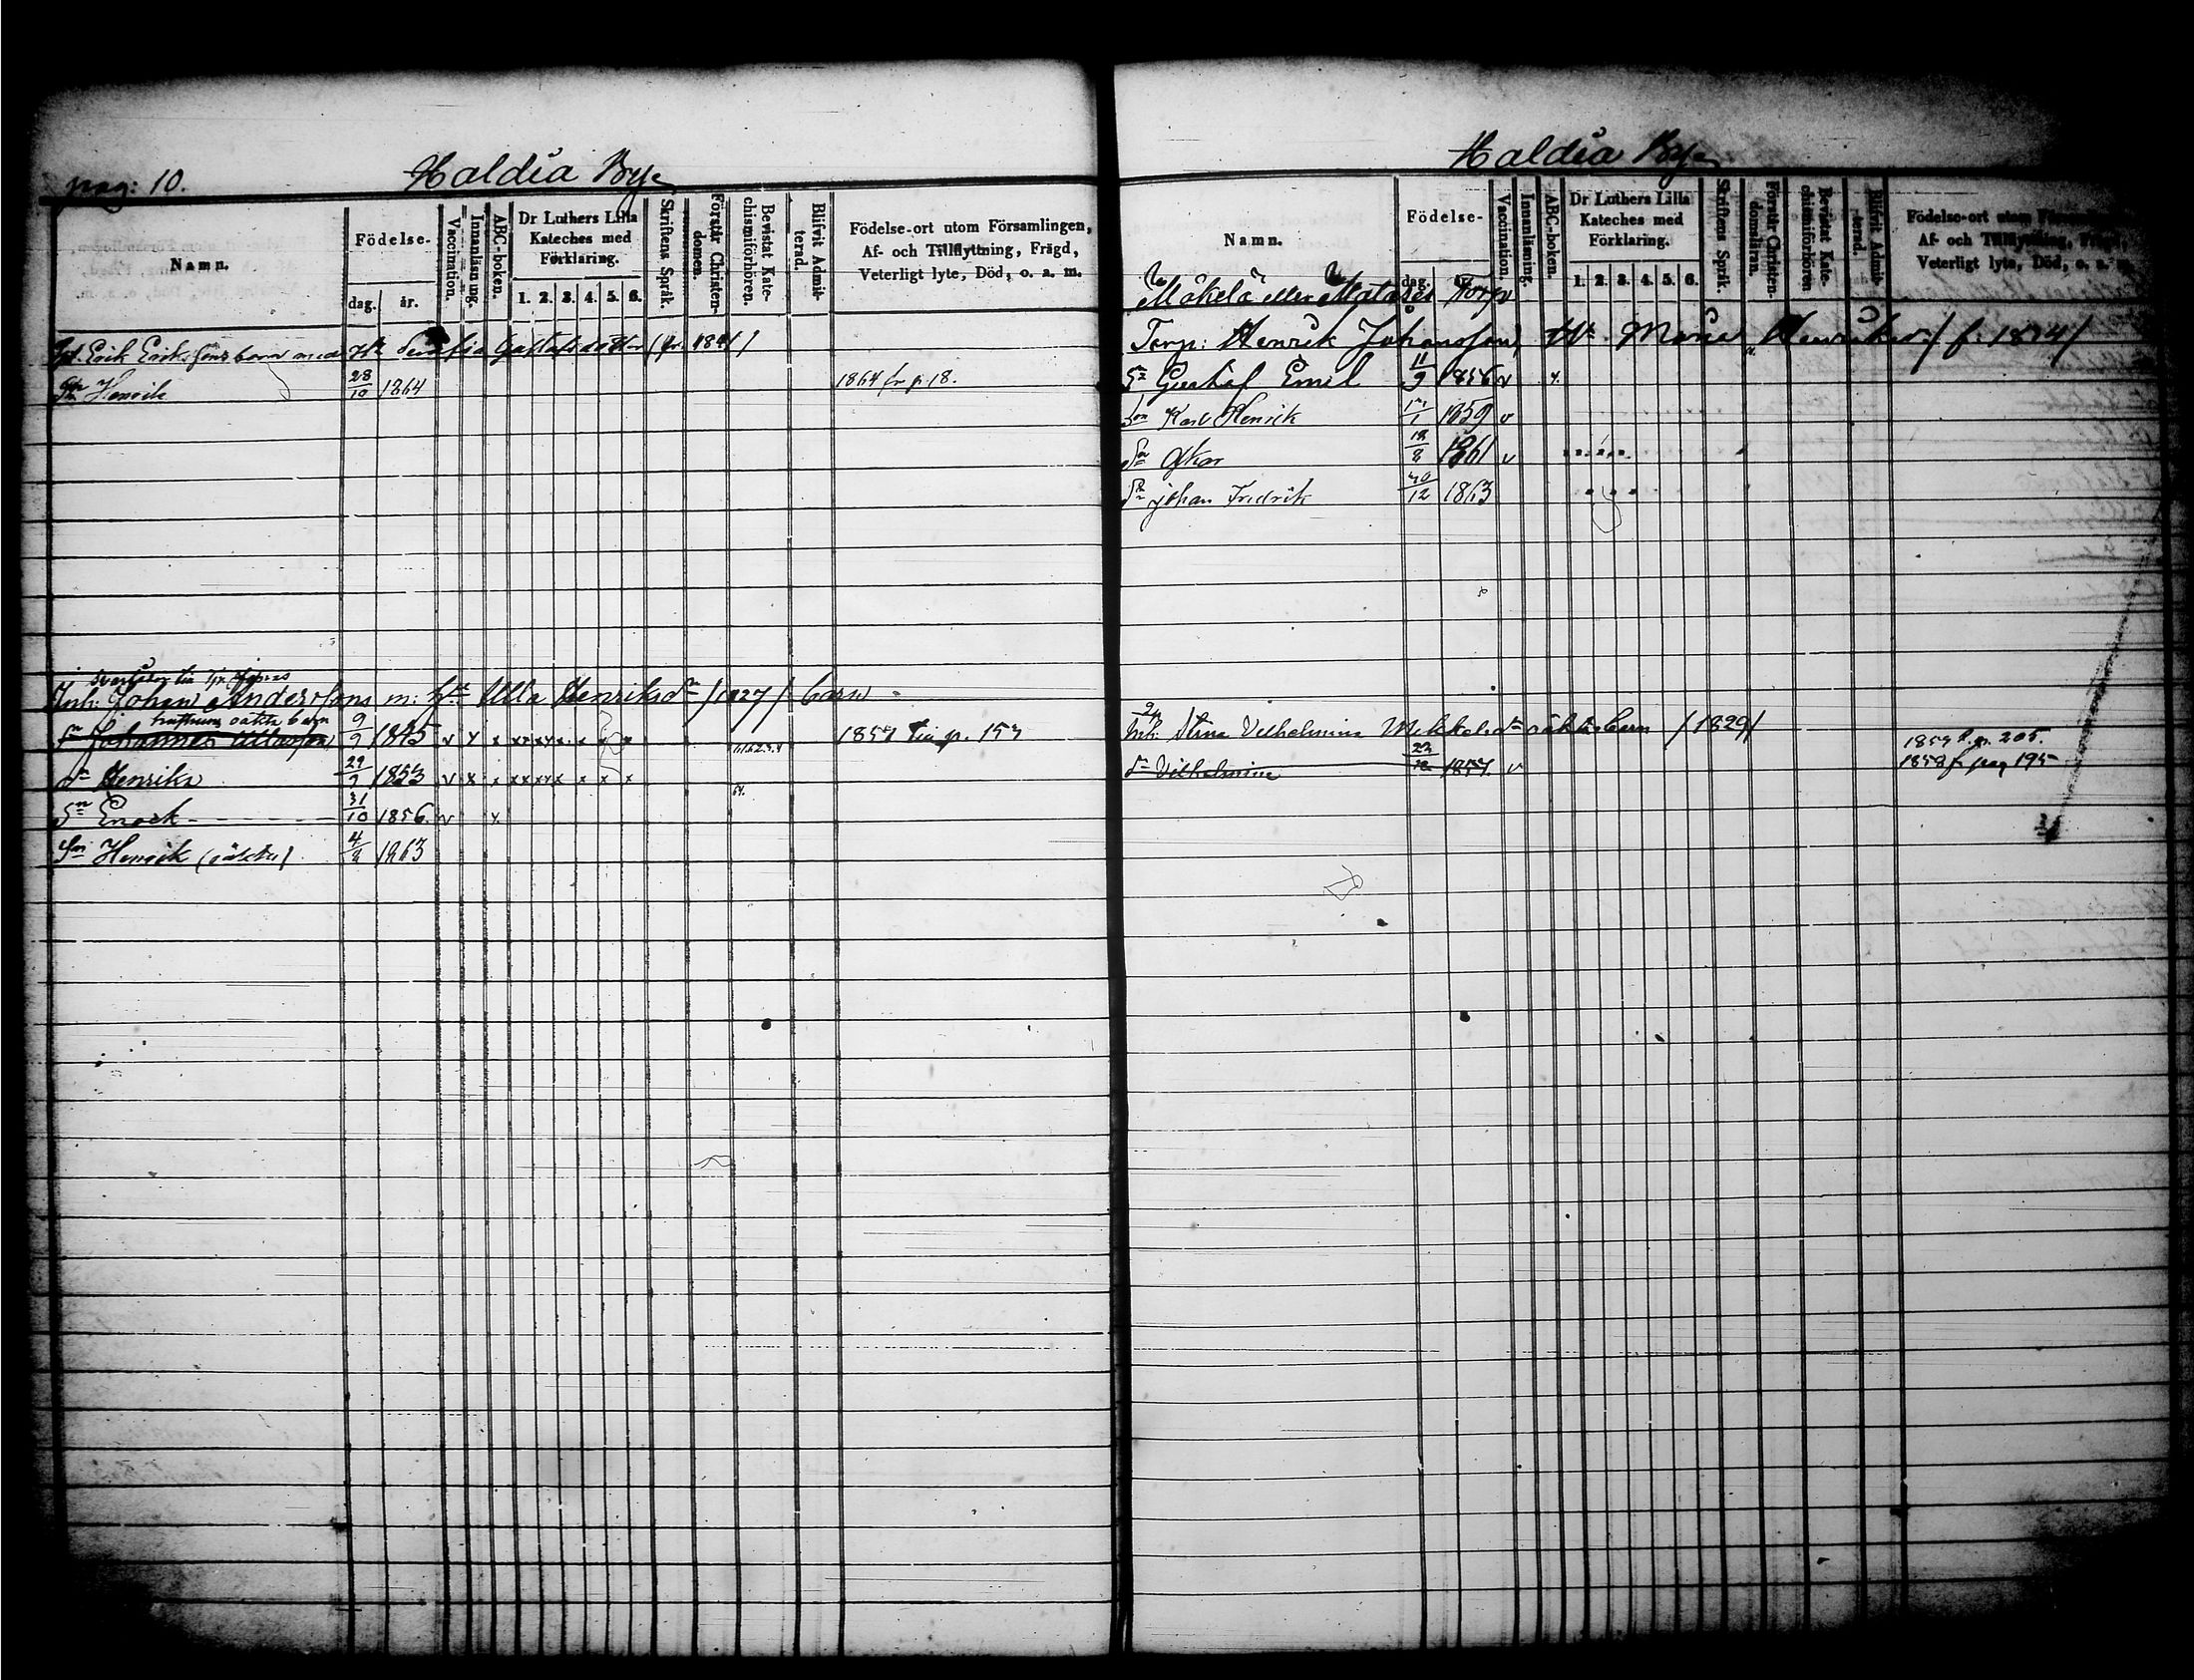 pag: 10.
Haldia By
Namn.
Födelse-
dag.
år.
Vaccination.
Innanläsning.
ABC-boken.
Dr Luthers Lilla
Kateches med
Förklaring.
1. 2. 3. 4. 5. 6.
Skriftens Språk.
Förstår Christen-
domen.
Bevistat Kate-
chismiförhören.
Blifvit Admit-
terad.
Födelse-ort utom Församlingen,
Af- och Tillflyttning, Frägd,
Veterligt lyte, Död, o. a. m.
Erik Erikssons barn med H. Gustafsdotter 1841)
Sn Henrik 28/10 1864 1864 fr p 18.
Inh: Johan Anderssons m: h. Ulla Henriksdr /1827/ barn
hustruns oäkta barn
Sn Johannes Ullasson 9/9 1845 v x x x x x x x x x 1857 till p. 157
Dr Henrika 29/9 1853 v x x x x x x x x x
Sn Enock 31/10 1856. v x.
Sn Henrik (oäkta) 4/8 1863
Haldia By
Namn.
Födelse-
dag.
Vaccination.
Innanläsning.
ABC-boken.
Dr Luthers Lilla
Kateches med
Förklaring.
1. 2. 3. 4. 5. 6.
Skriftens Språk.
Förstår Christen-
domsläran.
Bevistat Kate-
chismiförhören
Blifvit Admit-
terad.
Födelse-ort utom Församlingen,
Af- och Tillflyttning, Frägd,
Veterligt lyte, Död, o. a. m.
Mäkelä eller Torp
Torp: Henrik Johansson, H. Maria Henriksdr / f: 1824/
Sn Gustaf Emil 11/9 1856 v x.
Son Karl Henrik 1859 v
Sn Oskar 18/8 1861 v
Sn Johan Fredrik 12 1863
Inh: Stina Vilhelmina oäkta barn /1829/
1859 t. p. 205.
Dr Vilhelmina 1857. v 1858 fr pag 195